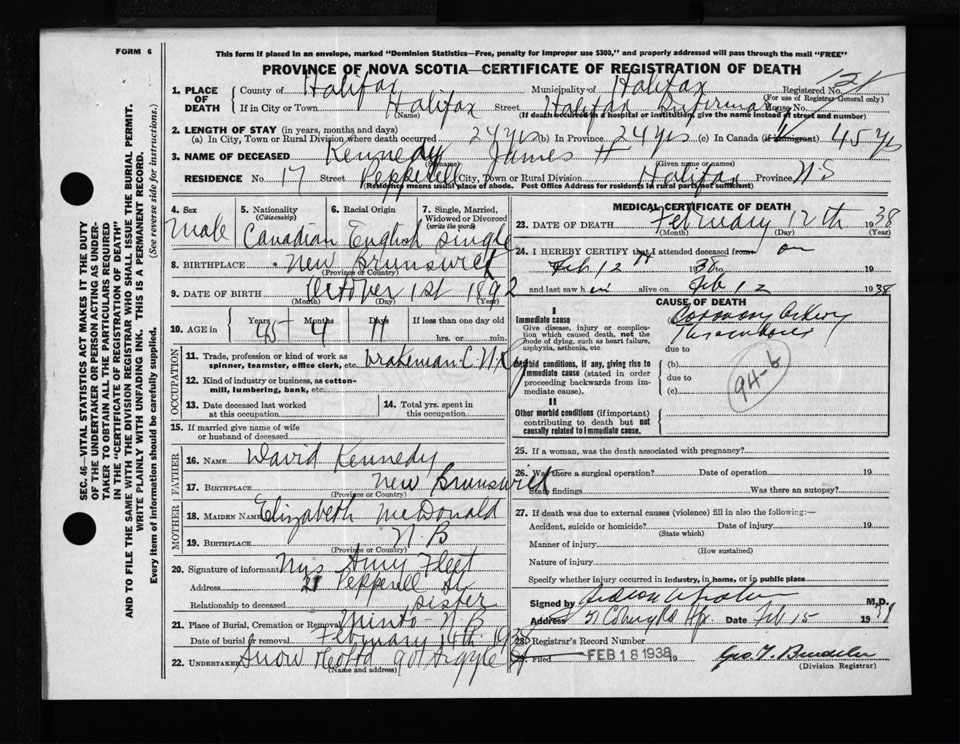 FORM 6
This form if placed in an envelope, marked "Dominion Statistics—Free, penalty for improper use $300," and properly addressed will pass through the mail "FREE"
PROVINCE OF NOVA SCOTIA—CERTIFICATE OF REGISTRATION OF DEATH
SEC. 46—VITAL STATISTICS ACT MAKES IT THE DUTY
OF THE UNDERTAKER OR PERSON ACTING AS UNDER-
TAKER TO OBTAIN ALL THE PARTICULARS REQUIRED
IN THE "CERTIFICATE OF REGISTRATION OF DEATH"
AND TO FILE THE SAME WITH THE DIVISION REGISTRAR WHO SHALL ISSUE THE BURIAL PERMIT.
WRITE PLAINLY WITH UNFADING INK. THIS IS A PERMANENT RECORD.
Every item of information should be carefully supplied. (See reverse side for instructions.)
1. PLACE OF DEATH
County of Halifax Municipality of Halifax Registered No. 121
(For use of Registrar General only)
If in City or Town Halifax Street Halifax Infirmary House No.
(Name) (If death occurred in a hospital or institution, give the name instead of street and number)
2. LENGTH OF STAY (in years, months and days)
(a) In City, Town or Rural Division where death occurred 24 yrs (b) In Province 24 yrs (c) In Canada (if immigrant) 45 yrs
3. NAME OF DECEASED Kennedy James H
(Surname) (Given name or names)
RESIDENCE No. 17 Street Pepperell City, Town or Rural Division Halifax Province N S
(Residence means usual place of abode. Post Office Address for residents in rural parts not sufficient)
4. Sex
Male
5. Nationality
(Citizenship)
Canadian
6. Racial Origin
English
7. Single, Married,
Widowed or Divorced
(write the word)
Single
8. BIRTHPLACE New Brunswick
(Province or Country)
9. DATE OF BIRTH October 1st 1892
(Month) (Day) (Year)
10. AGE in
Years Months Days If less than one day old
45 4 11 hrs. or min.
OCCUPATION
11. Trade, profession or kind of work as
spinner, teamster, office clerk, etc. brakeman C.N.Ry
12. Kind of industry or business, as cotton-
mill, lumbering, bank, etc.
13. Date deceased last worked
at this occupation
14. Total yrs. spent in
this occupation
15. If married give name of wife
or husband of deceased
FATHER
16. Name David Kennedy
17. Birthplace New Brunswick
(Province or Country)
MOTHER
18. Maiden Name Elizabeth McDonald
19. Birthplace N.B
(Province or Country)
20. Signature of informant Mrs Amy Fleet
Address 21 Pepperell St
Relationship to deceased sister
21. Place of Burial, Cremation or Removal Minto N B
Date of burial or removal February 14th 1938
22. Undertaker Snow 90 Argyle St
(Name and address)
MEDICAL CERTIFICATE OF DEATH
23. DATE OF DEATH February 12th 1938
(Month) (Day) (Year)
24. I HEREBY CERTIFY that I attended deceased from on
Feb 12th 1938 19
and last saw him alive on Feb 12 1938
CAUSE OF DEATH
I
Immediate cause
Give disease, injury or complica-
tion which caused death, not the
mode of dying, such as heart failure,
asphyxia, asthenia, etc.
Coronary Artery
Thrombosis
due to
Morbid conditions, if any, giving rise to
immediate cause (stated in order
proceeding backwards from im-
mediate cause).
(b)
due to
(c)
94-b
II
Other morbid conditions (if important)
contributing to death but not
causally related to immediate cause.
25. If a woman, was the death associated with pregnancy?
26. Was there a surgical operation? Date of operation 19
State findings Was there an autopsy?
27. If death was due to external causes (violence) fill in also the following:—
Accident, suicide or homicide? Date of injury 19
(State which)
Manner of injury
(How sustained)
Nature of injury
Specify whether injury occurred in industry, in home, or in public place
Signed by M.D.
Address Hfx Date Feb 15 19
28. Registrar's Record Number
Filed FEB 18 1938 19
(Division Registrar)